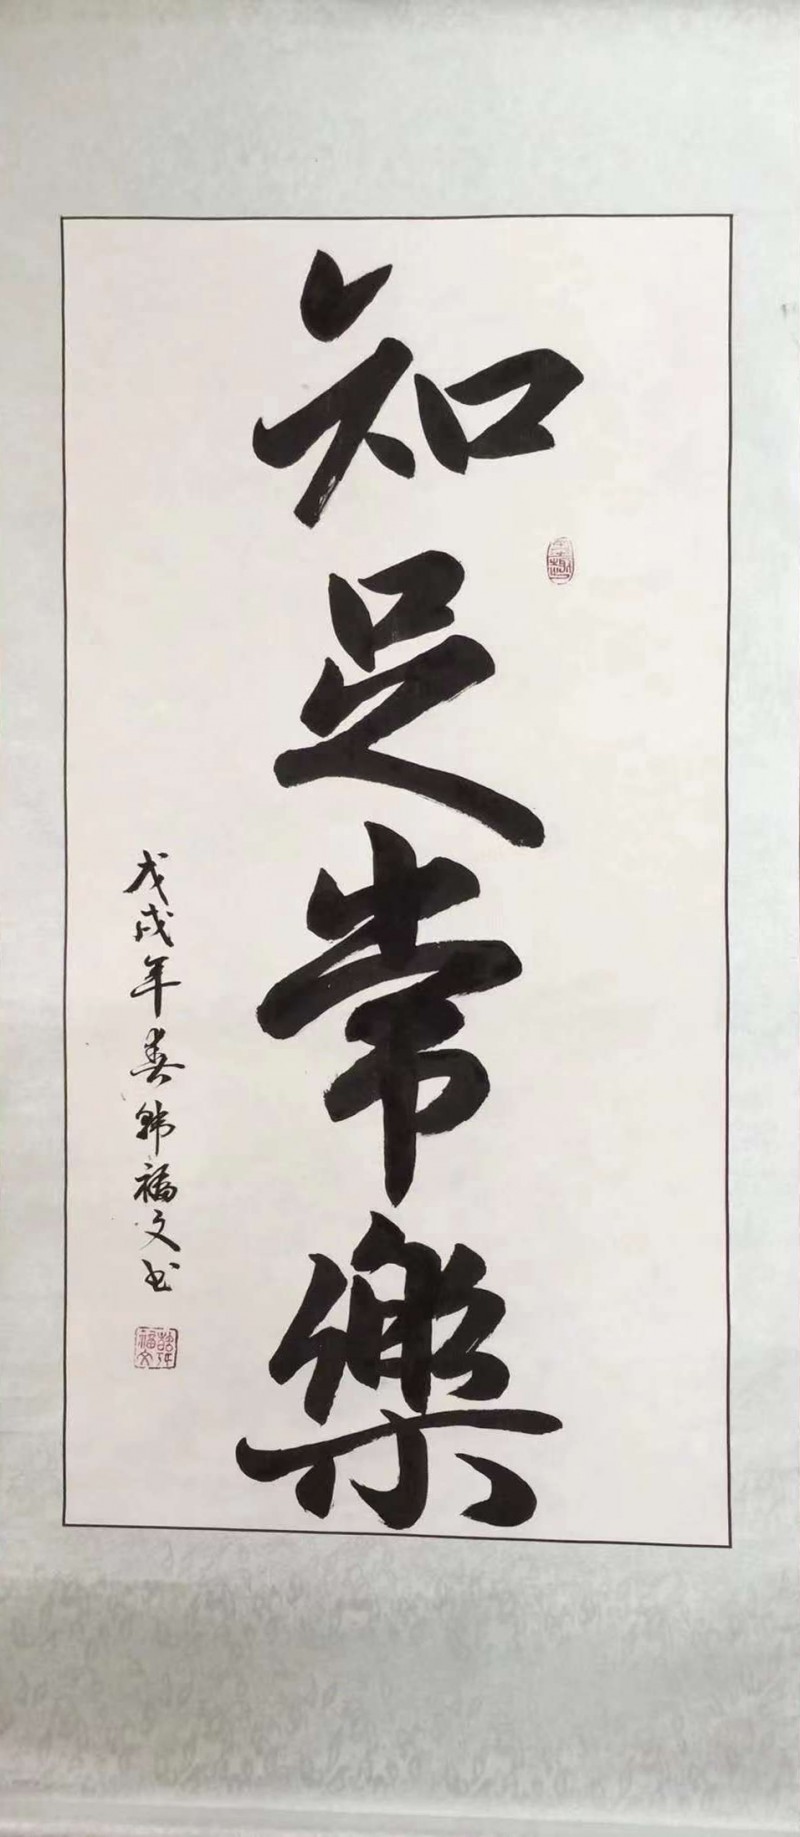 知足常樂
戊戌年春韩福文书